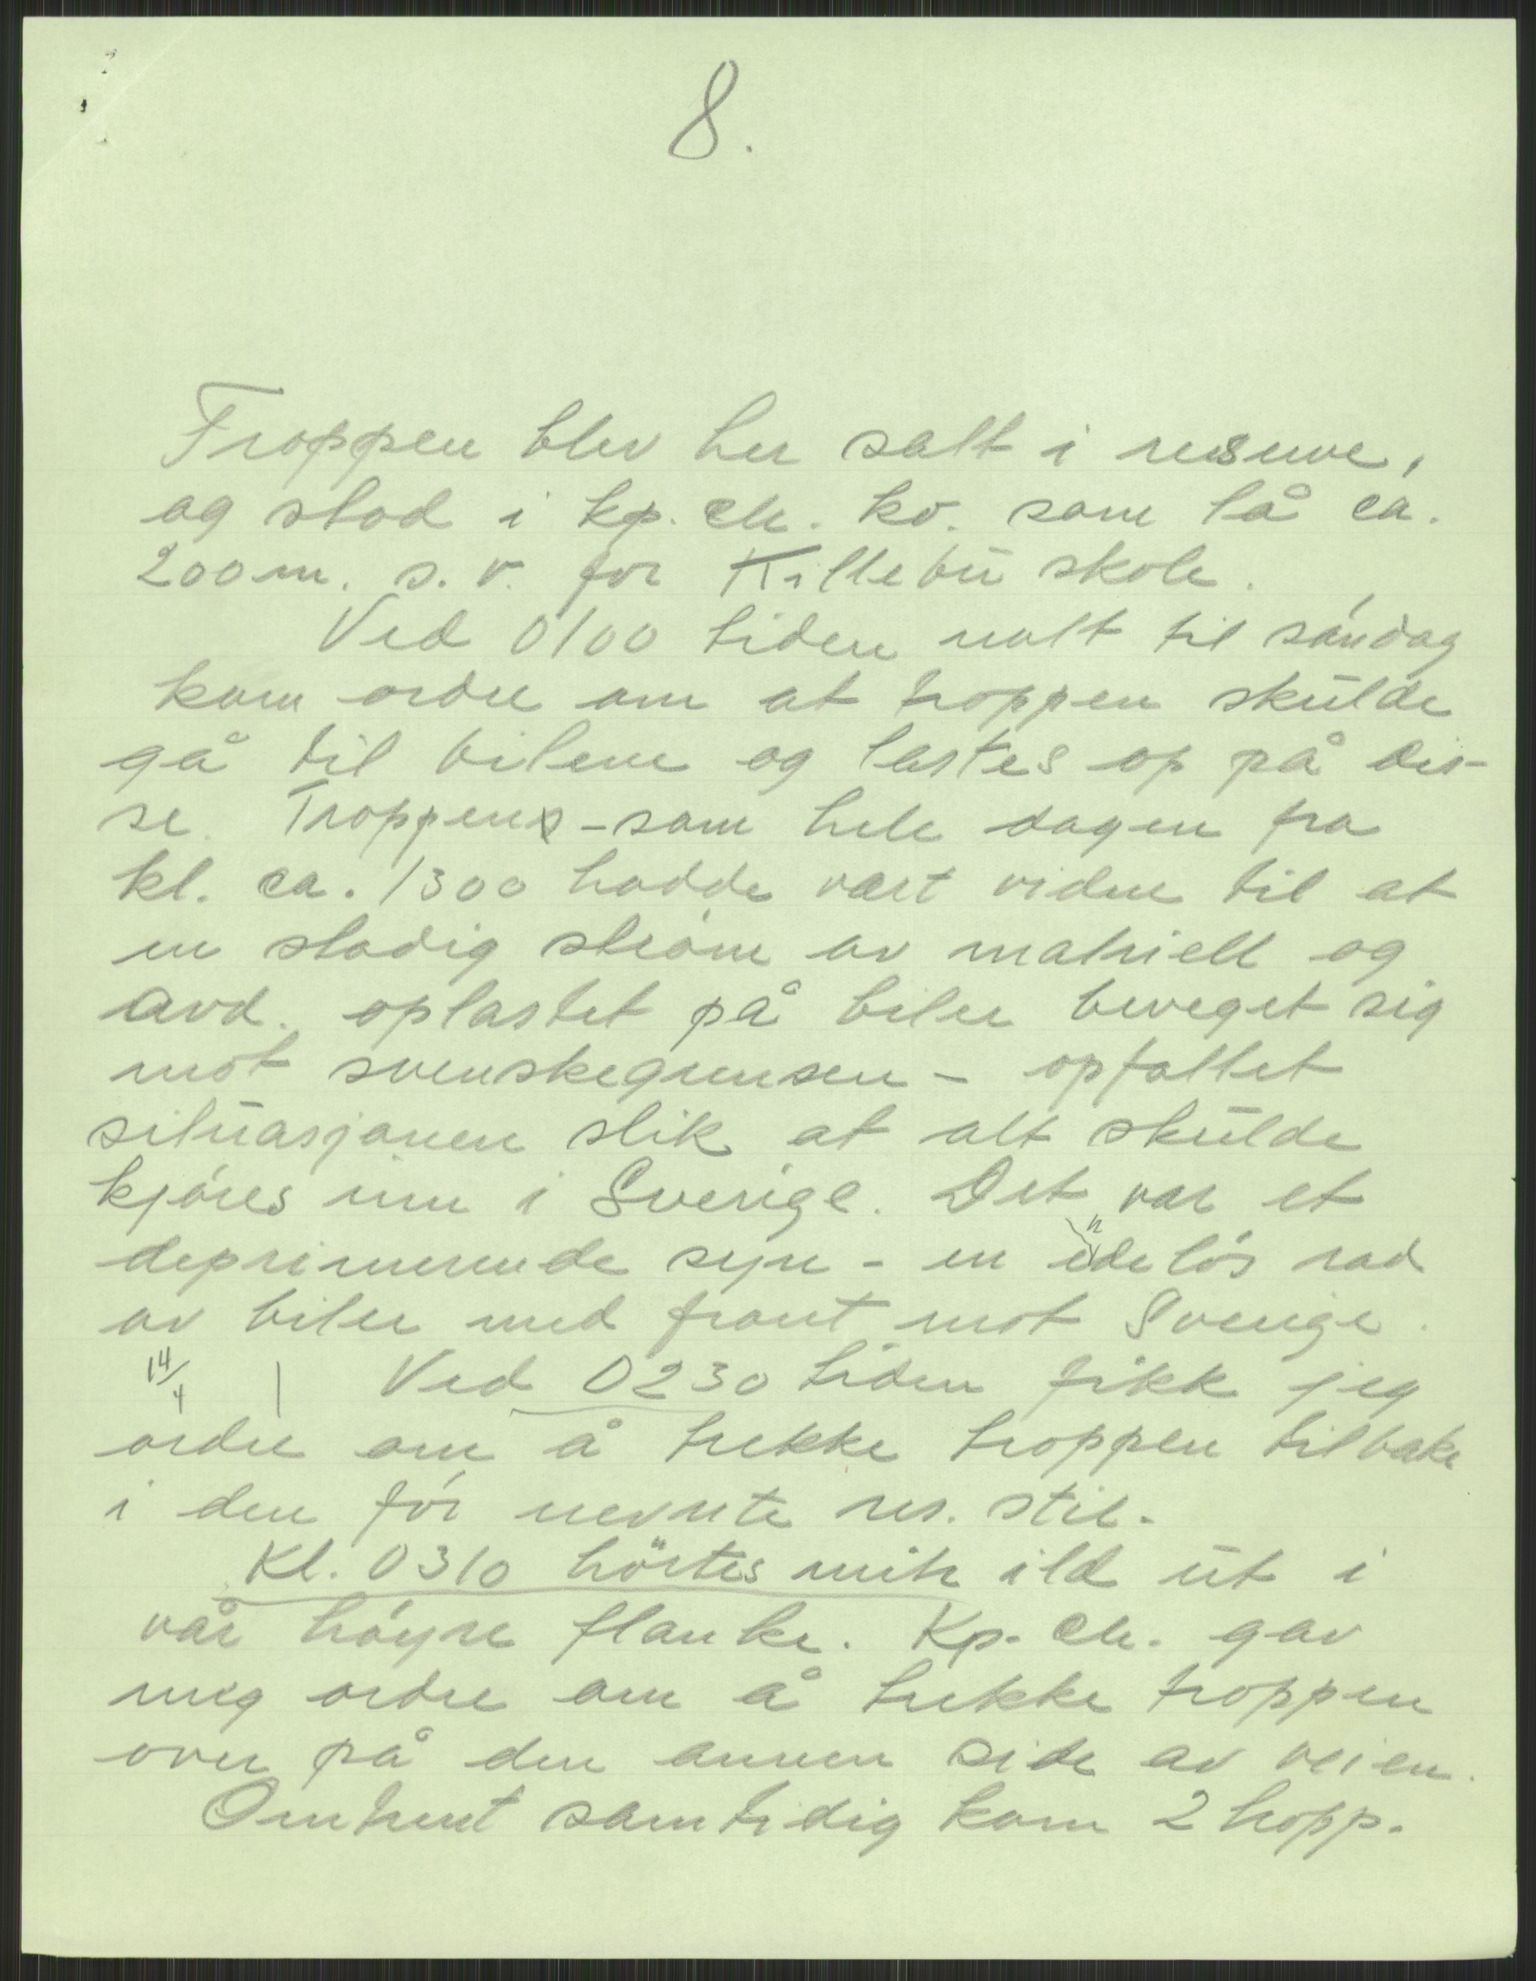 8.
Troppen blev her satt i reserve,
og stod i kp. ch. ko. som lå ca.
200 m. s.v. for Killebu skole.
Ved 0100 tiden natt til söndag
kom ordre om at troppen skulde
gå til bilene og lastes op på dis-
se. Troppen - som hele dagen fra
kl. ca. 1300 hadde vært vidne til at
en stadig ström av matriell og
avd. oplastet på biler beveget sig
mot svenskegrensen - opfattet
situasjonen slik at alt skulde
kjöres inn i Sverige. Det var et
deprimerende syn - en endelös rad
av biler med front mot Sverige.
14/4 Ved 0230 tiden fikk jeg
ordre om å trekke troppen tilbake
i den för nevnte res. still.
Kl. 0310 hörtes mitr ild ut i
vår höyre flanke. Kp. ch. gav
mig ordre om å trekke troppen
over på den annen side av veien.
Omtrent samtidig kom 2 tropp.